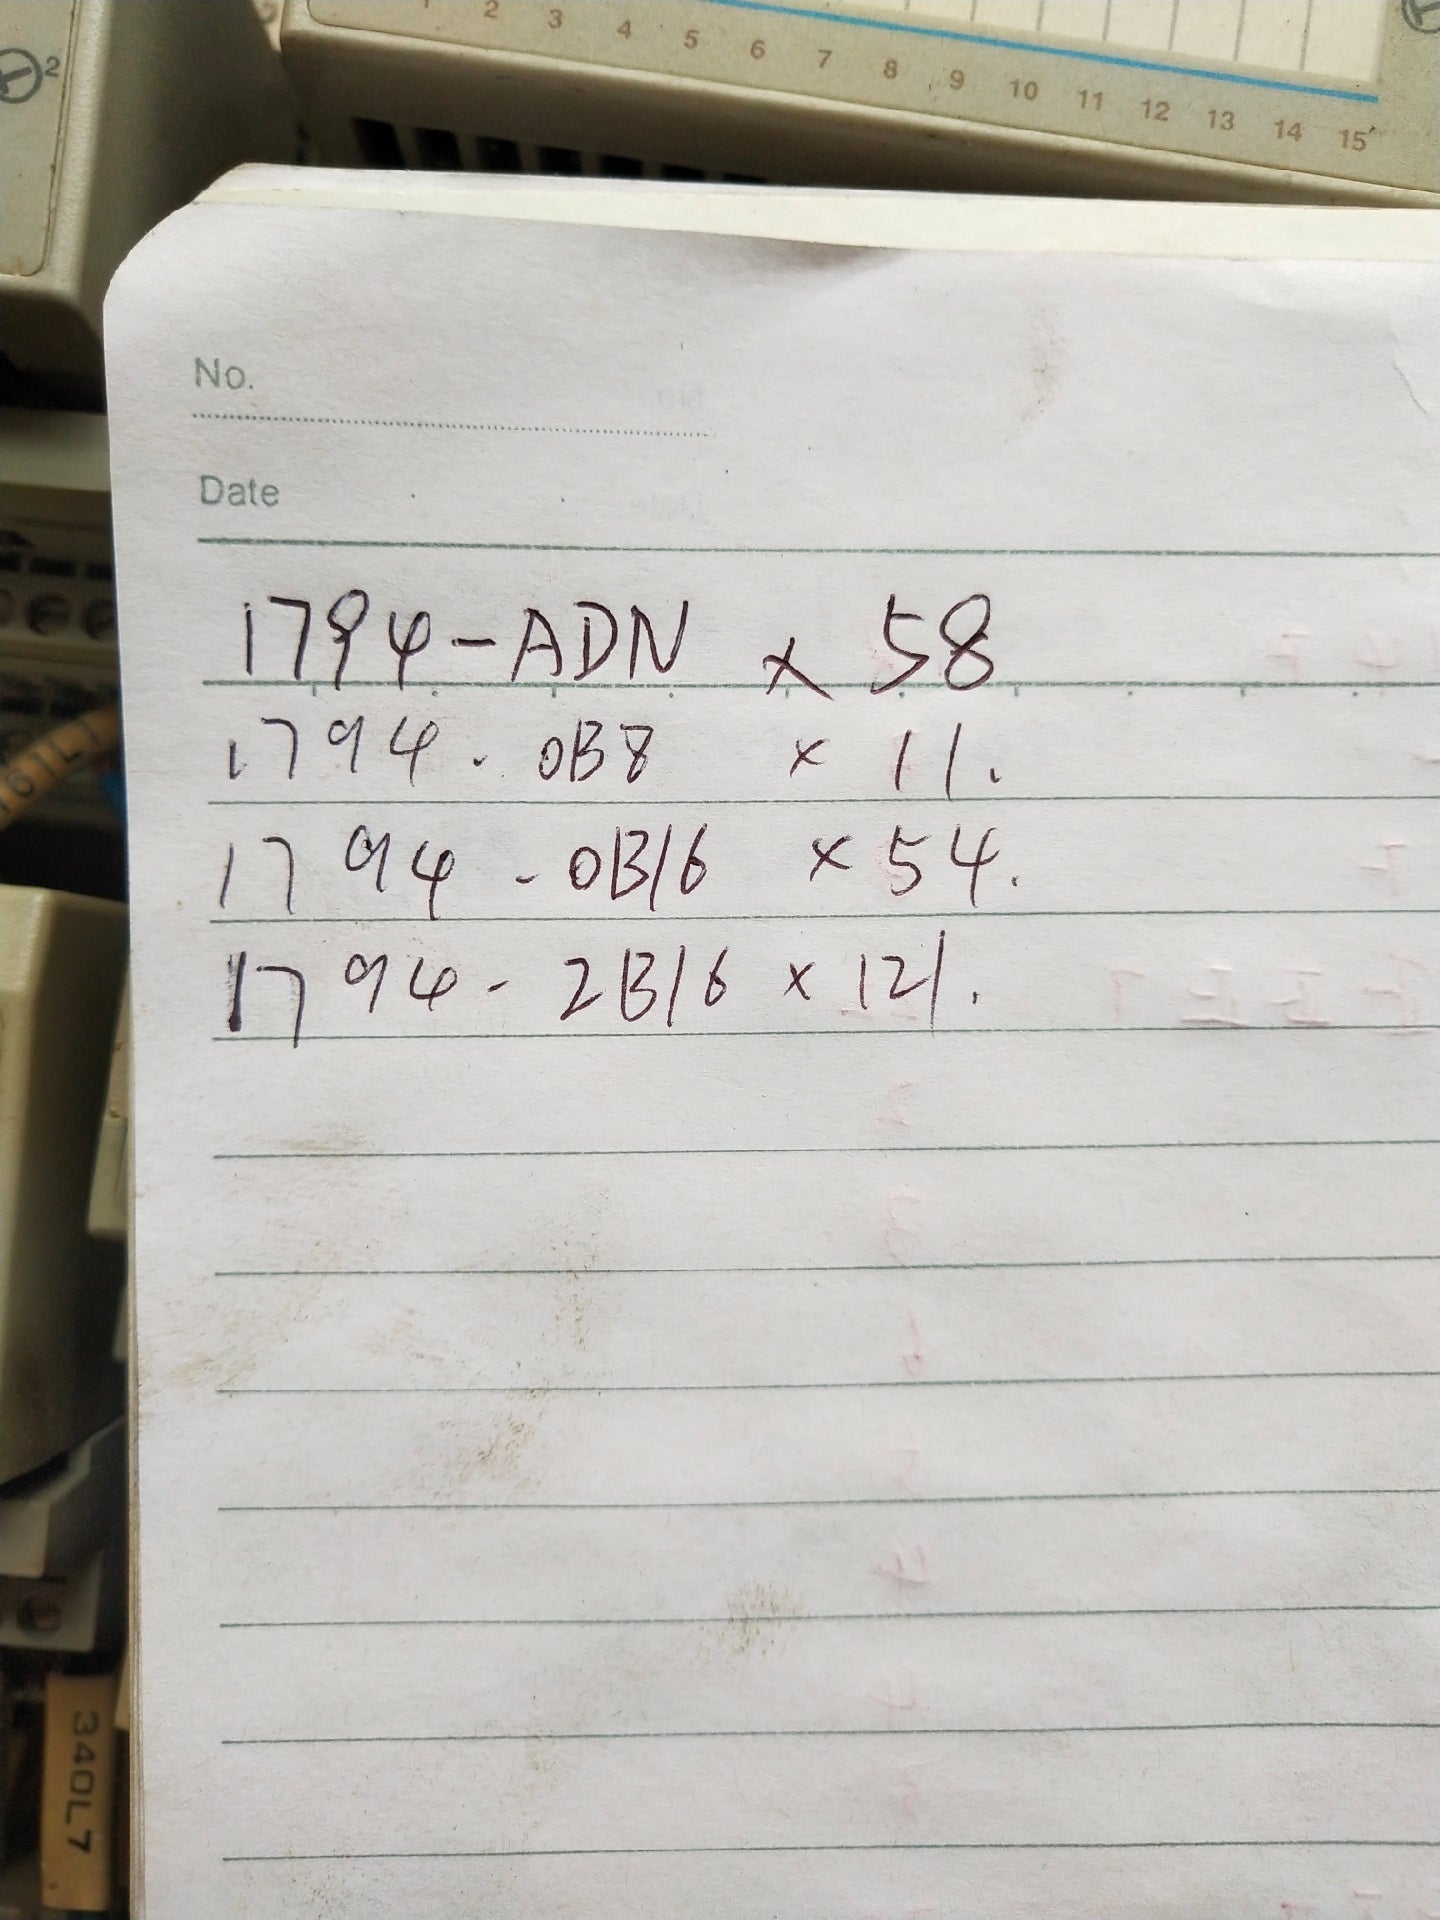 2
1 2 3 4 5 6 7 8 9 10 11 12 13 14 15
No.
Date
1794-ADN x 58
1794-OB8 x 11.
1794-OB16 x 54.
1794-2B16 x 121.
161L1
340L7